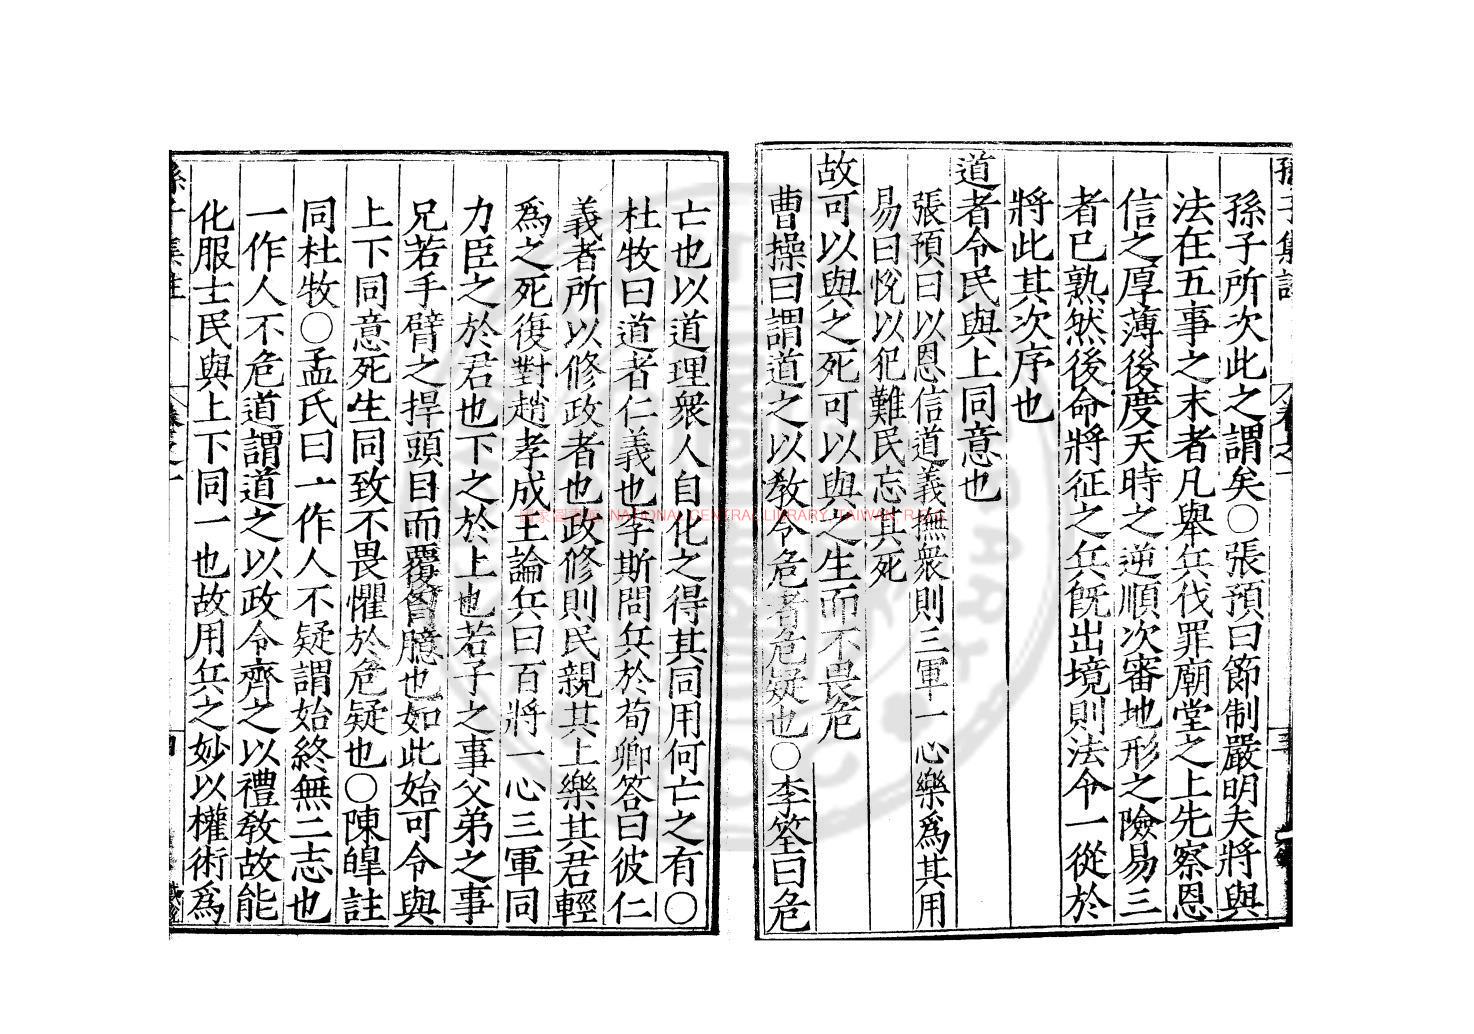 孫子所次此之謂矣○張預曰節制嚴明夫將與
法在五事之末者凡舉兵伐罪廟堂之上先察恩
信之厚薄後度天時之逆順次審地形之險易三
者已熟然後命將征之兵旣出境則法令一從於
將此其次序也
道者令民與上同意也
張預曰以恩信道義撫衆則三軍一心樂爲其用
易曰恱以犯難民忘其死
故可以與之死可以與之生而不畏危
曹操曰謂道之以敎令危者危疑也○李筌曰危
亡也以道理衆人自化之得其同用何亡之有○
杜牧曰道者仁義也李斯問兵於荀卿答曰彼仁
義者所以修政者也政修則民親其上樂其君輕
爲之死復對趙孝成王論兵曰百將一心三軍同
力臣之於君也下之於上也若子之事父弟之事
兄若手臂之捍頭目而覆胷臆也如此始可令與
上下同意死生同致不畏懼於危疑也○陳皥註
同杜牧○孟氏曰一作人不疑謂始終無二志也
一作人不危道謂道之以政令齊之以禮敎故能
化服士民與上下同一也故用兵之妙以權術爲
孫子集註
卷之一
四
NATIONAL CENTRAL LIBRARY, TAIWAN, R.O.C.